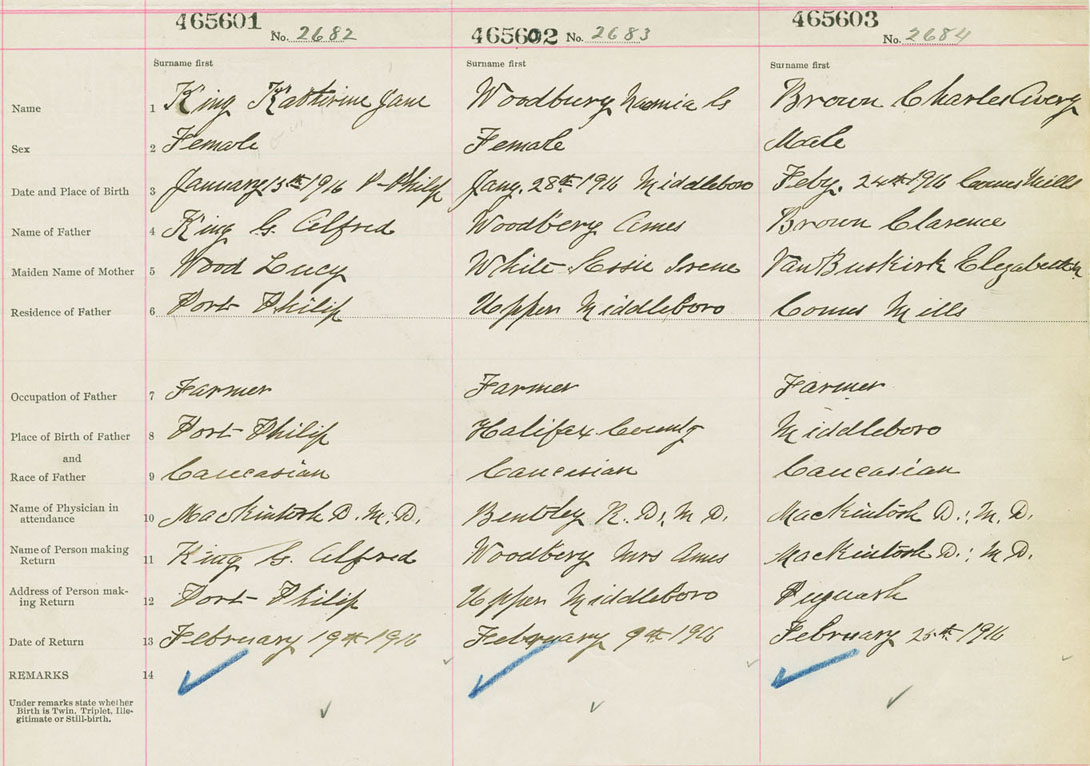 465601 No. 2682 465602 No. 2683 465603 No. 2684
Surname first Surname first Surname first
Name 1 King Katherine Jane Woodbury Naomia G Brown Charles Avery
Sex 2 Female Female Male
Date and Place of Birth 3 January 13th 1916 P-Philip Jany. 28th 1916 Middleboro Feby. 24th 1916 Mills
Name of Father 4 King G. Alfred Woodbery Ames Brown Clarence
Maiden Name of Mother 5 Wood Lucy White Essie Irene VanBuskirk Elizabeth
Residence of Father 6 Port Philip Upper Middleboro Mills
Occupation of Father 7 Farmer Farmer Farmer
Place of Birth of Father 8 Port Philip Halifax County Middleboro
and
Race of Father 9 Caucasian Caucasian Caucasian
Name of Physician in
attendance 10 MacKintosh D. M.D. Bentley R. D; M D. MacKintosh D.; M. D.
Name of Person making
Return 11 King G. Alfred Woodbery Mrs Ames MacKintosh D.; M D.
Address of Person mak-
ing Return 12 Port Philip Upper Middleboro Pugwash
Date of Return 13 February 19th 1916 February 9th 1916 February 26th 1916
REMARKS 14
Under remarks state whether
Birth is Twin, Triplet, Ille-
gitimate or Still-birth.